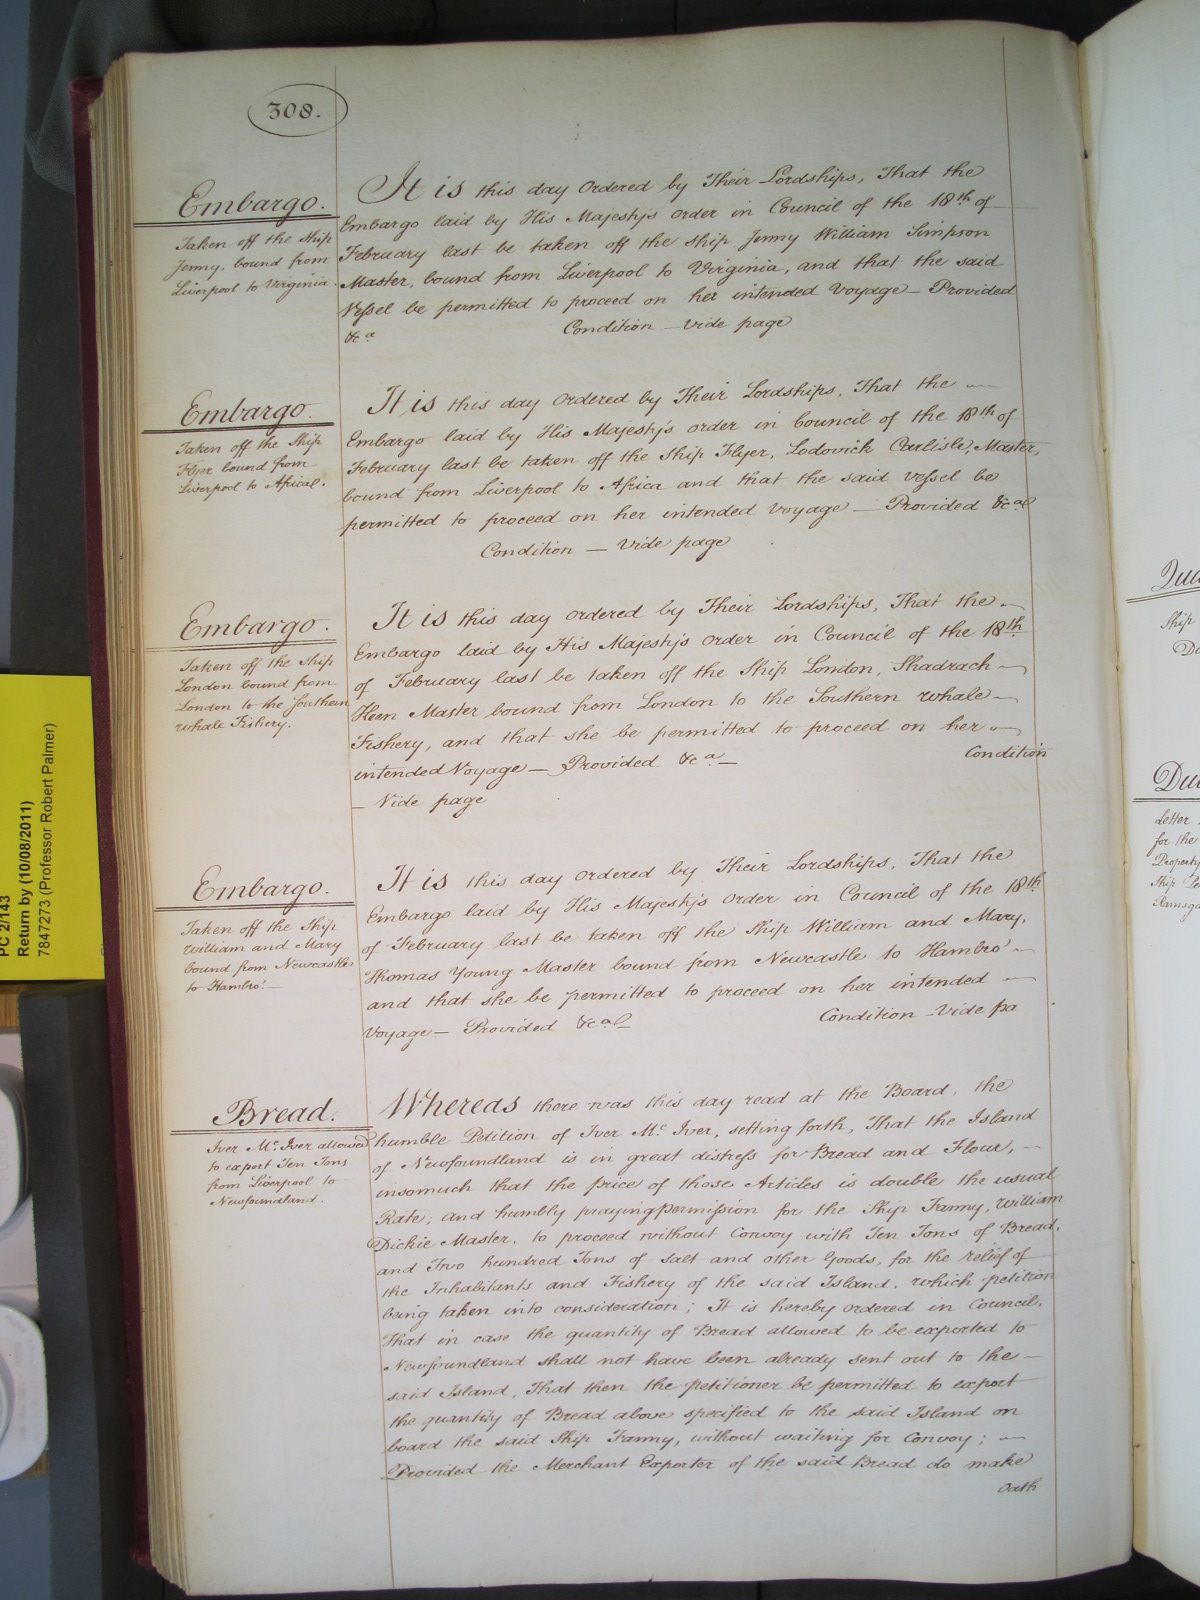 308.
Embargo.
Taken off the Ship
Jenny, bound from
Liverpool to Virginia.
It is this day Ordered by Their Lordships, That the
Embargo laid by His Majesty's order in Council of the 18th of
February last be taken off the ship Jenny William Simpson
Master, bound from Liverpool to Virginia, and that the said
Vessel be permitted to proceed on her intended Voyage — Provided
&ca Condition — Vide page
Embargo.
Taken off the Ship
Flyer bound from
Liverpool to Africa.
It is this day Ordered by Their Lordships, That the —
Embargo laid by His Majesty's order in Council of the 18th of
February last be taken off the Ship Flyer, Lodovick Carlisle, Master,
bound from Liverpool to Africa and that the said Vessel be
permitted to proceed on her intended Voyage — Provided &cal
Condition — Vide page
Embargo.
Taken off the Ship
London bound from
London to the Southern
whale Fishery.
It is this day ordered by Their Lordships, That the —
Embargo laid by His Majesty's Order in Council of the 18th
of February last be taken off the Ship London, Shadrach —
Keen Master bound from London to the Southern whale —
Fishery, and that she be permitted to proceed on her —
intended Voyage — Provided &ca — Condition
— Vide page
Embargo.
Taken off the Ship
William and Mary
bound from Newcastle
to Hambro' —
It is this day ordered by Their Lordships, That the
Embargo laid by His Majesty's Order in Council of the 18th
of February last be taken off the Ship William and Mary,
Thomas Young Master bound from Newcastle to Hambro' —
and that she be permitted to proceed on her intended —
Voyage — Provided &cal Condition - Vide pa
Bread.
Iver Mc. Iver allowed
to export Ten Tons
from Liverpool to
Newfoundland.
Whereas there was this day read at the Board, the
humble Petition of Iver Mc. Iver, setting forth, That the Island
of Newfoundland is in great distress for Bread and Flour, —
insomuch that the price of those Articles is double the usual
Rate; and humbly praying Permission for the Ship Fanny, William
Dickie Master, to proceed without Convoy with Ten Tons of Bread,
and Two hundred Tons of Salt and other Goods, for the relief of
the Inhabitants and Fishery of the said Island. which petition
being taken into consideration; It is hereby ordered in Council,
That in case the quantity of Bread allowed to be exported to
Newfoundland shall not have been already sent out to the —
said Island, That then the petitioner be permitted to export
the quantity of Bread above specified to the said Island on
board the said Ship Fanny, without waiting for Convoy; —
Provided the Merchant Exporter of the said Bread do make
oath
PC 2/143
Return by (10/08/2011)
7847273 (Professor Robert Palmer)
Ship
letter
for the
Property